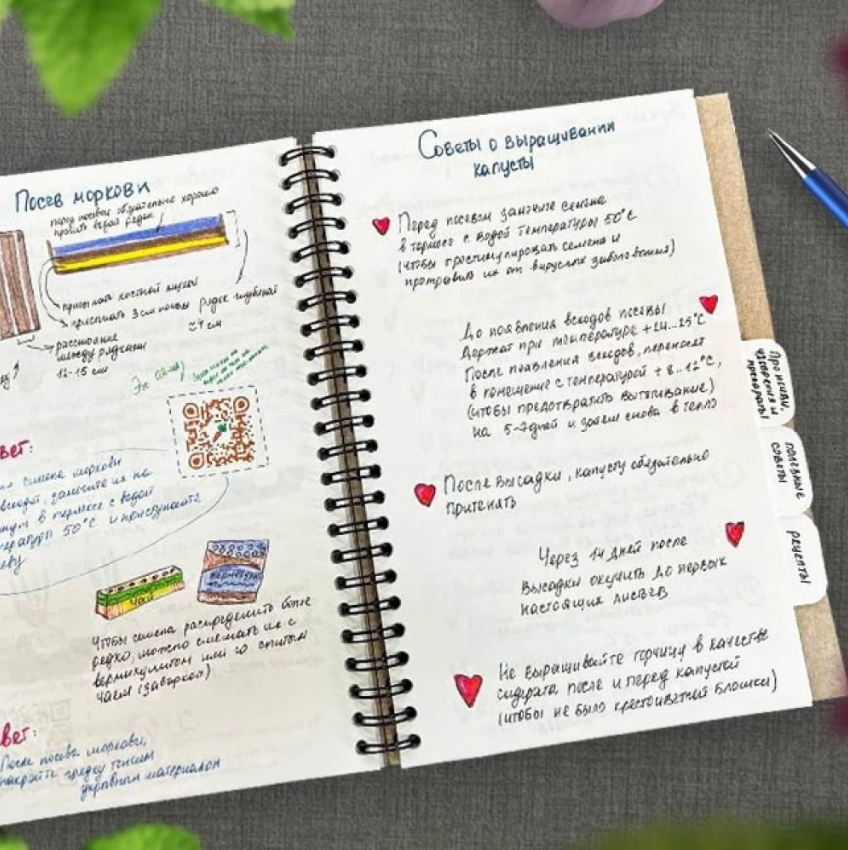 Посев моркови
перед посевом обязательно хорошо
пролить водой рядок
присыпать костной мукой
присыпать 3 см почвы
рядок глубиной
≈4 см
расстояние
между рядками
12-15 см
Эх яйма)
вет:
семена моркови
замочите их на
в термосе с водой
температуры 50°С и приступайте
севу
Чай
вермикулит
Чтобы семена распределить более
редко, можно смешать их с
вермикулитом или со спитым
чаем (заваркой)
вет:
После посева моркови,
накройте грядку тонким
укрывным материалом
Советы о выращивании
капусты
Перед посевом замочите семена
в термосе с водой температуры 50°С
(чтобы простимулировать семена и
протравить их от вирусных заболевания)
До появления всходов посевы
держат при температуре +24...25°С
После появления всходов, переносят
в помещение с температурой +8...12°С,
(чтобы предотвратить вытягивание)
на 5-7 дней и затем снова в тепло
После высадки, капусту обязательно
притенять
Через 14 дней после
высадки окучить до первых
настоящих листьев
Не выращивайте горчицу в качестве
сидерата после и перед капустой
(чтобы не было крестоцветной блошки)
Про почву,
удобрения и
препараты
полезные
советы
рецепты